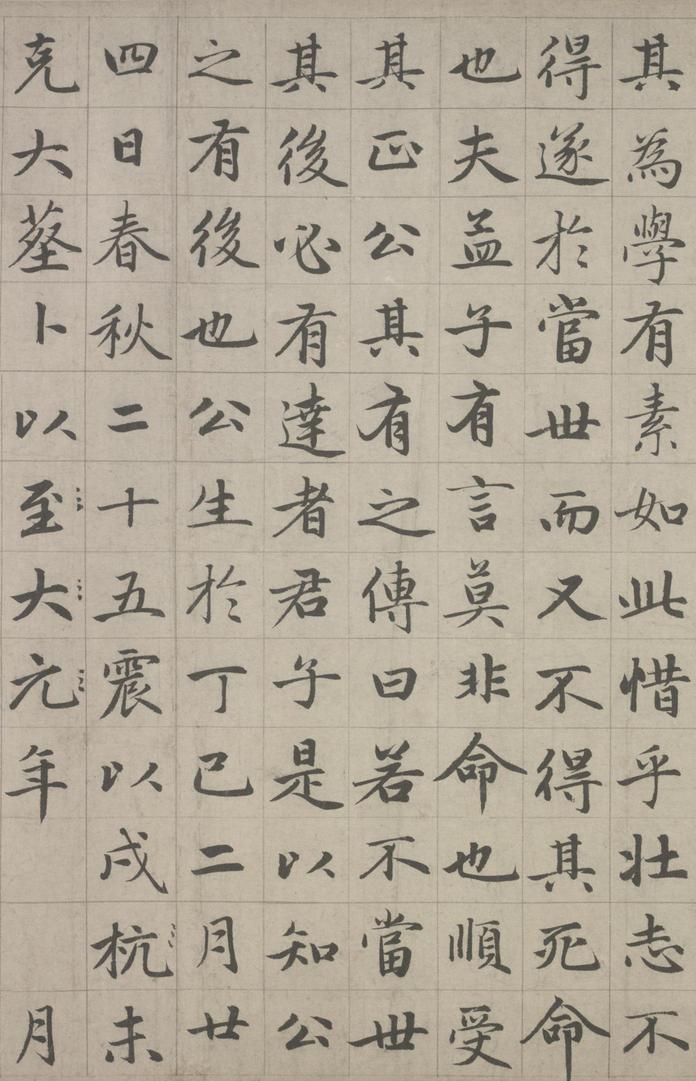 其為學有素如此惜乎壯志不
得遂於當世而又不得其死命
也夫孟子有言莫非命也順受
其正公其有之傳曰若不當世
其後必有達者君子是以知公
之有後也公生於丁巳二月廿
四日春秋二十五震以戍杭未
克大葬卜以至大元年月